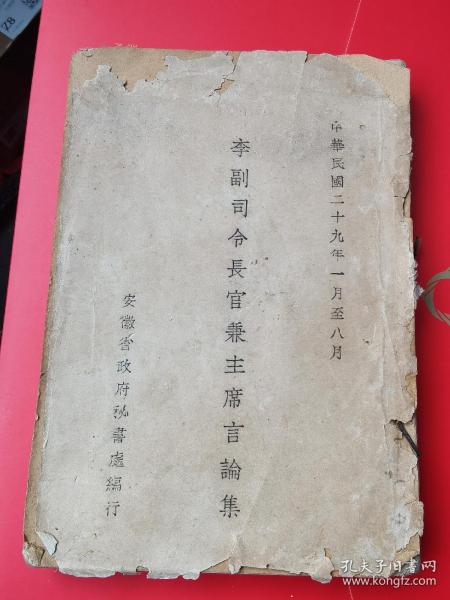 中華民國二十九年一月至八月
李副司令長官兼主席言論集
安徽省政府秘書處編行
Z8
孔夫子旧书网
www.kongfz.com